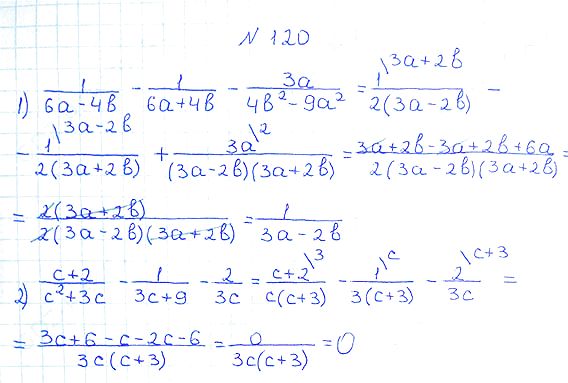 N 120
1) 1/(6a-4b) - 1/(6a+4b) - 3a/(4b²-9a²) = 1\3a+2b/(2(3a-2b)) -
- 1\3a-2b/(2(3a+2b)) + 3a\2/((3a-2b)(3a+2b)) = (3a+2b-3a+2b+6a)/(2(3a-2b)(3a+2b)) =
= 2(3a+2b)/(2(3a-2b)(3a+2b)) = 1/(3a-2b)
2) (c+2)/(c²+3c) - 1/(3c+9) - 2/(3c) = c+2\3/(c(c+3)) - 1\c/(3(c+3)) - 2\c+3/(3c) =
= (3c+6-c-2c-6)/(3c(c+3)) = 0/(3c(c+3)) = 0